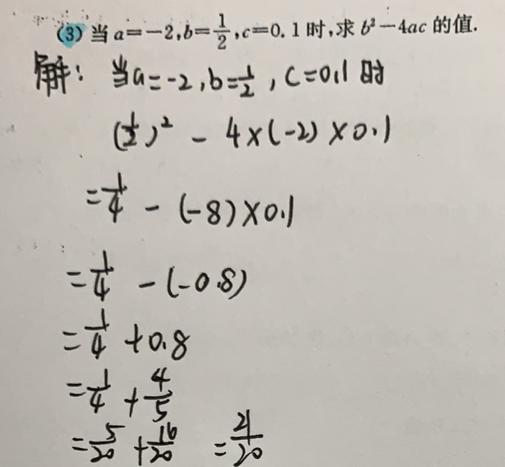 (3) 当 a=-2,b=1/2,c=0.1 时,求 b²-4ac 的值.
解：当a=-2,b=1/2,c=0.1时
(1/2)²-4×(-2)×0.1
=1/4-(-8)×0.1
=1/4-(-0.8)
=1/4+0.8
=1/4+4/5
=5/20+16/20 =21/20